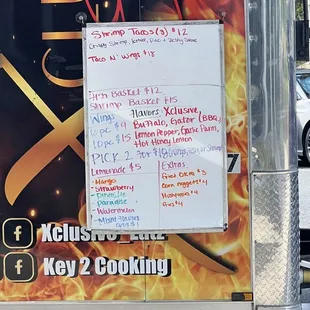 Shrimp Tacos(3) $12
Crispy Shrimp,
Taco N' Wings $18
Fish Basket $12
Shrimp Basket $15
Wings Flavors: Xclusive,
6pc $9 Buffalo, Gator (BBQ),
10pc $15 Lemon Pepper, Garlic Parm,
Hot Honey Lemon
PICK 2 For $18
Lemonade $5 Extras
- Mango Fried Okra $5
- Strawberry Corn nuggets $4
- Paradise
- Watermelon Fries $4
7
f Xclusive_Eatz
f Key 2 Cooking